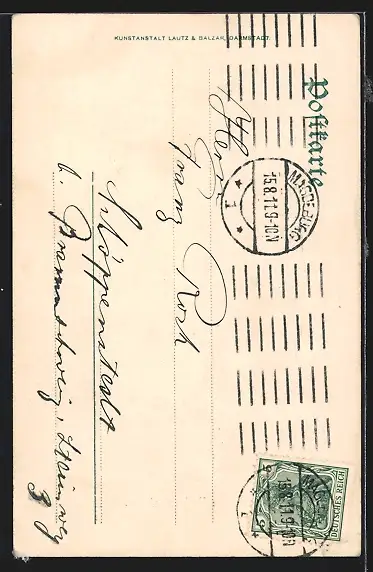 KUNSTANSTALT LAUTZ & BALZAR, DARMSTADT.
Postkarte
MAGDEBURG
15.8.11.9-10N
* 1 *
Herrn
Franz Koch
Schöppenstedt
b. Braunschweig, Steinweg
MAGDEBURG
15.8.11.9-10N
DEUTSCHES REICH